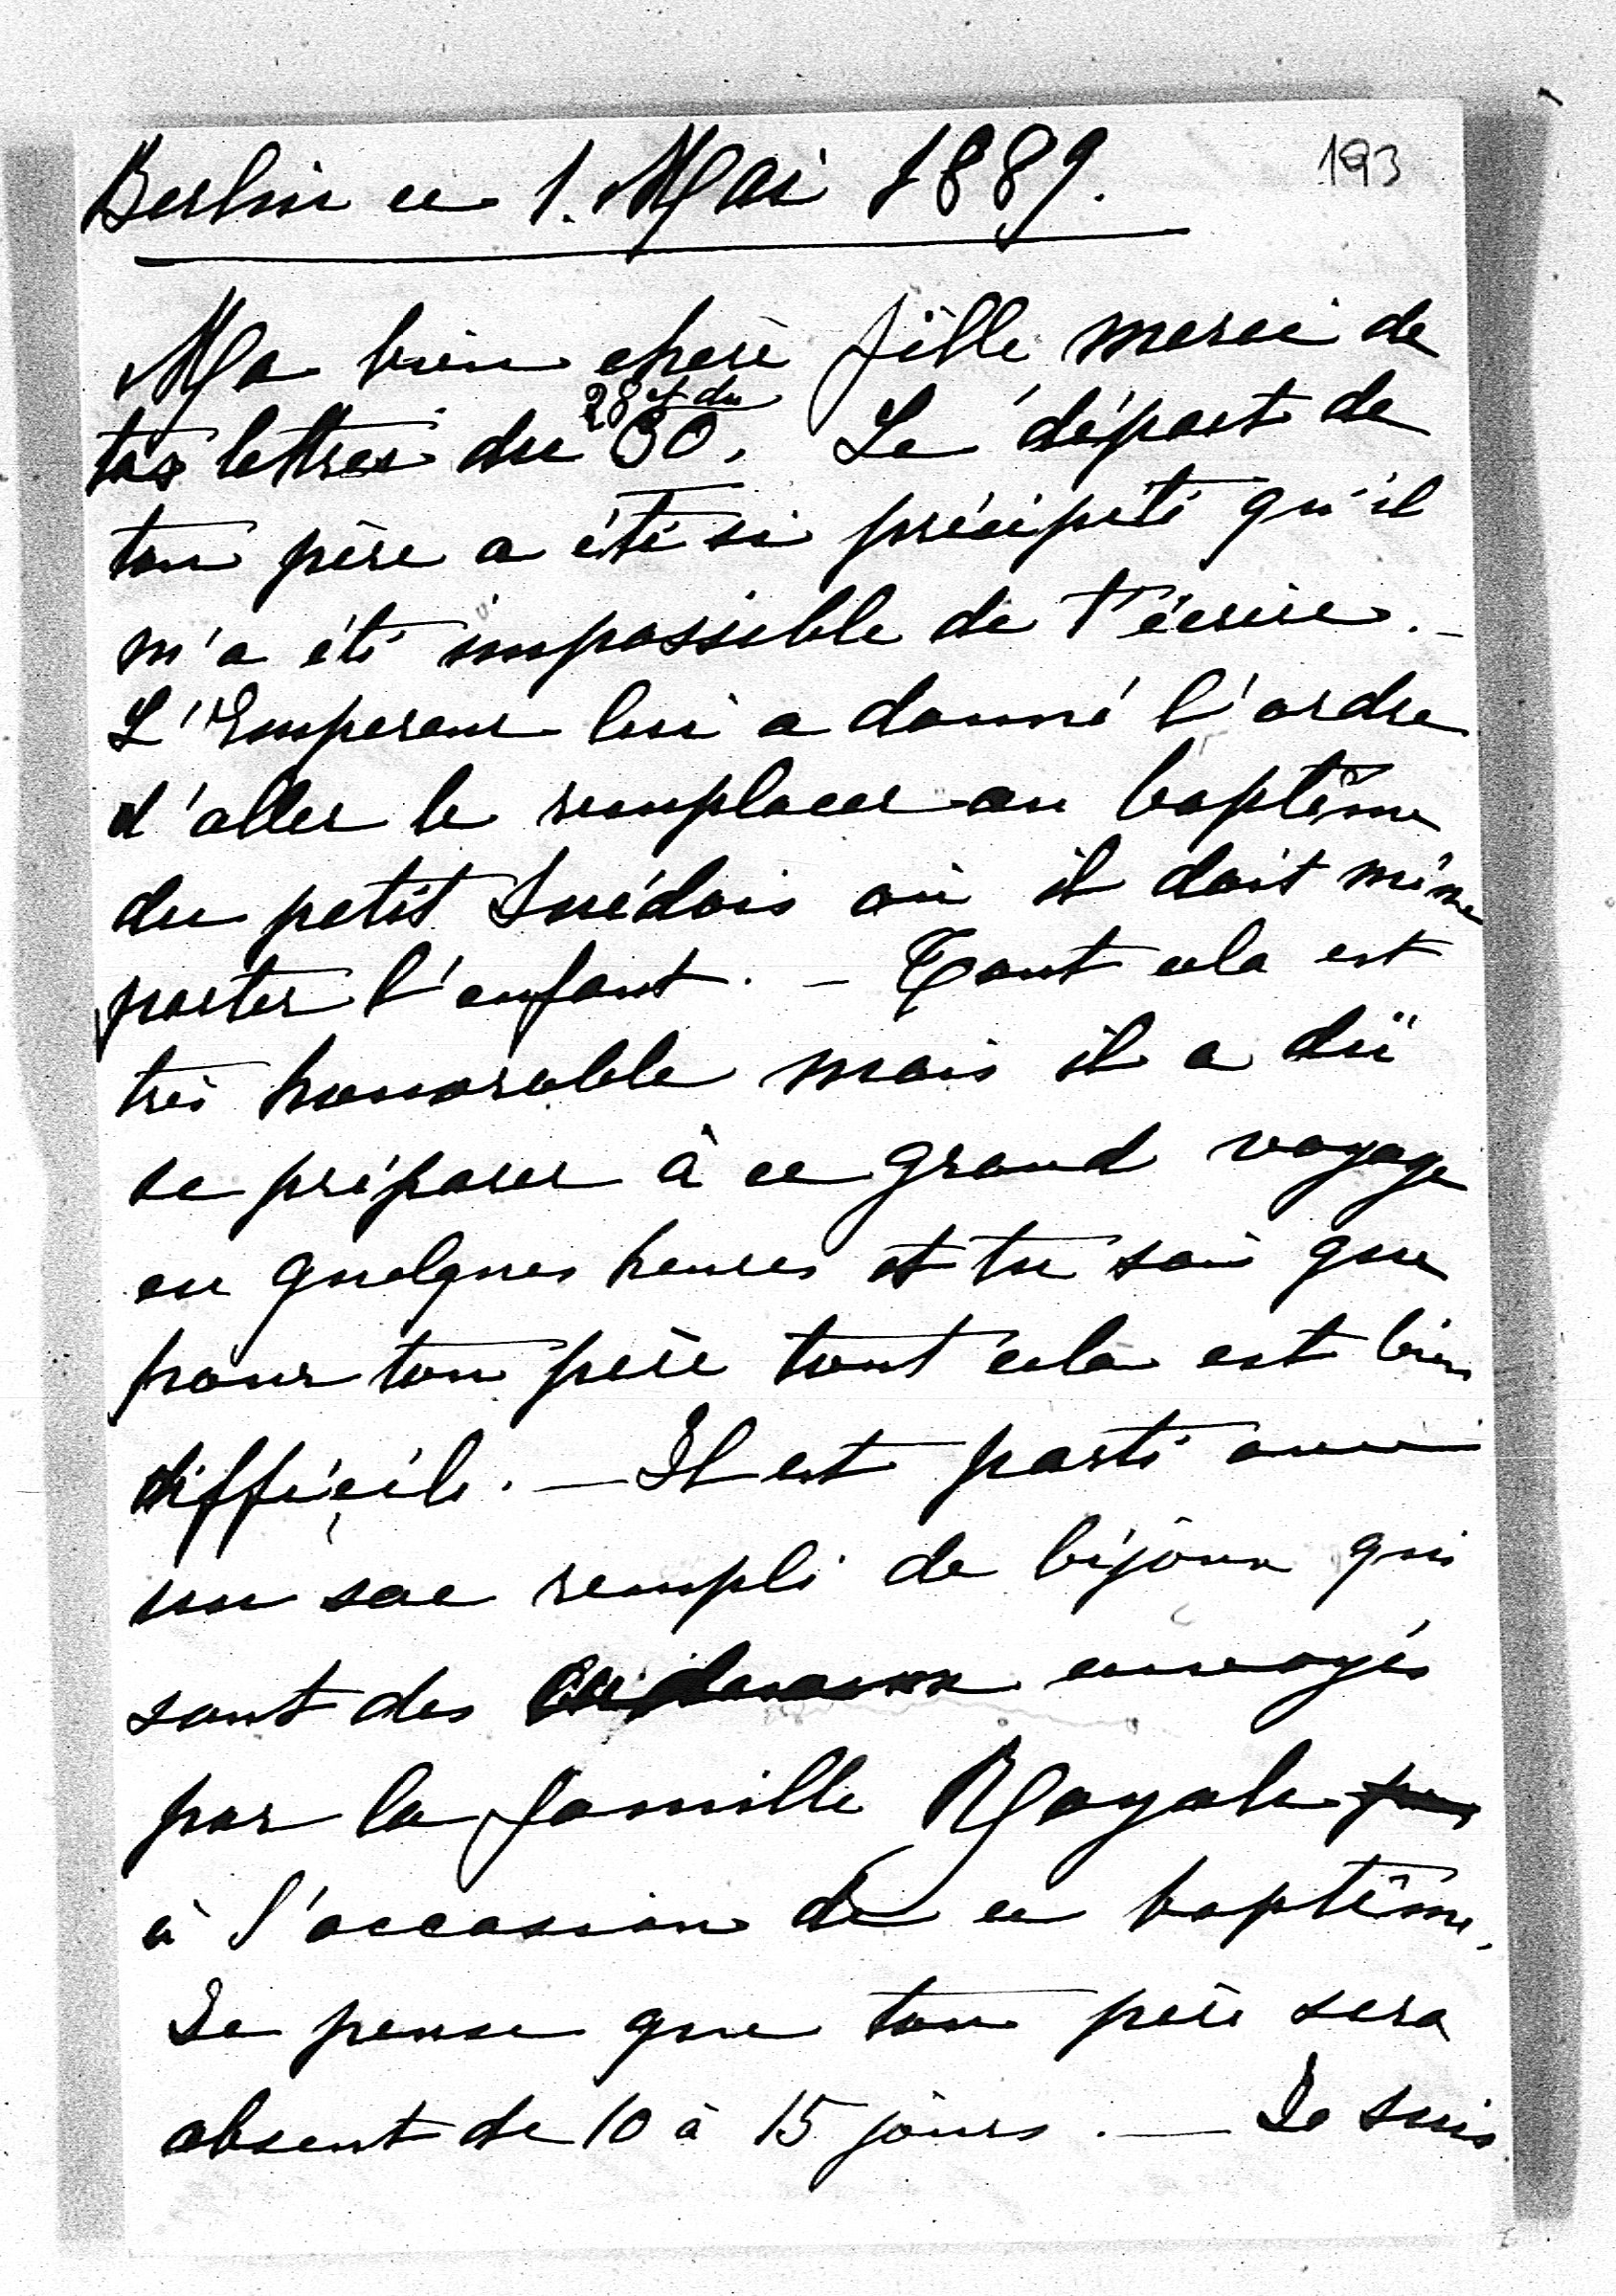 193
Berlin ce 1. Mai 1889.
Ma bien chère fille merci de
tes lettres du 28 et du 30. Le départ de
ton père a été si précipité qu'il
m'a été impossible de t'écrire. –
L'Empereur lui a donné l'ordre
d'aller le remplacer au baptême
du petit Suédois où il doit même
porter l'enfant. – Tout cela est
très honorable mais il a dû
se préparer à ce grand voyage
en quelques heures et tu sais que
pour ton père tout cela est bien
difficile. – Il est parti avec
un sac rempli de bijoux qui
sont des envoyés
par la famille Royale
à l'occasion de ce baptême.
Je pense que ton père sera
absent de 10 à 15 jours. – Je suis